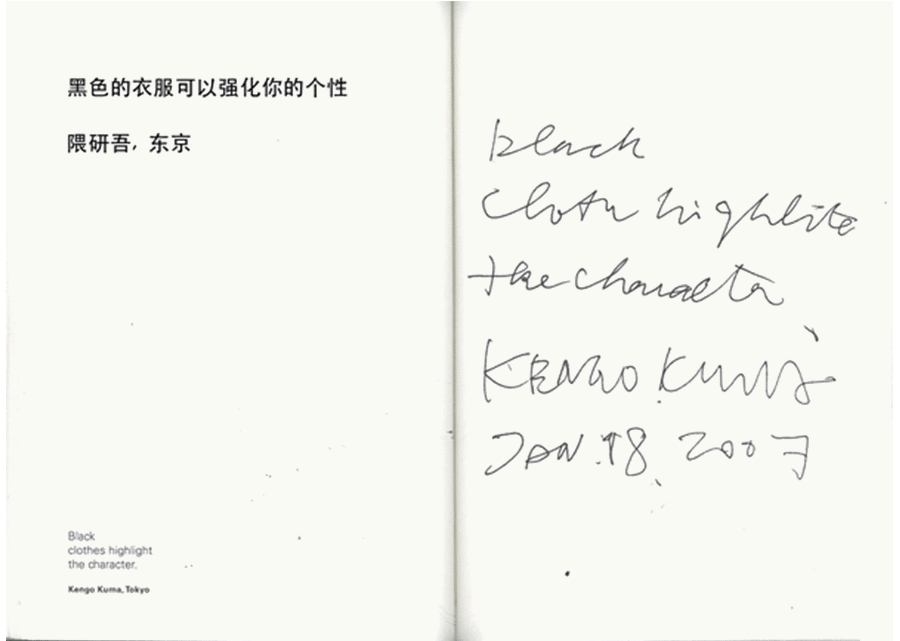 黑色的衣服可以强化你的个性
隈研吾，东京
Black
clothes highlight
the character.
Kengo Kuma, Tokyo
black
cloth highlite
the character
KENGO KUMA
JAN. 18. 2007